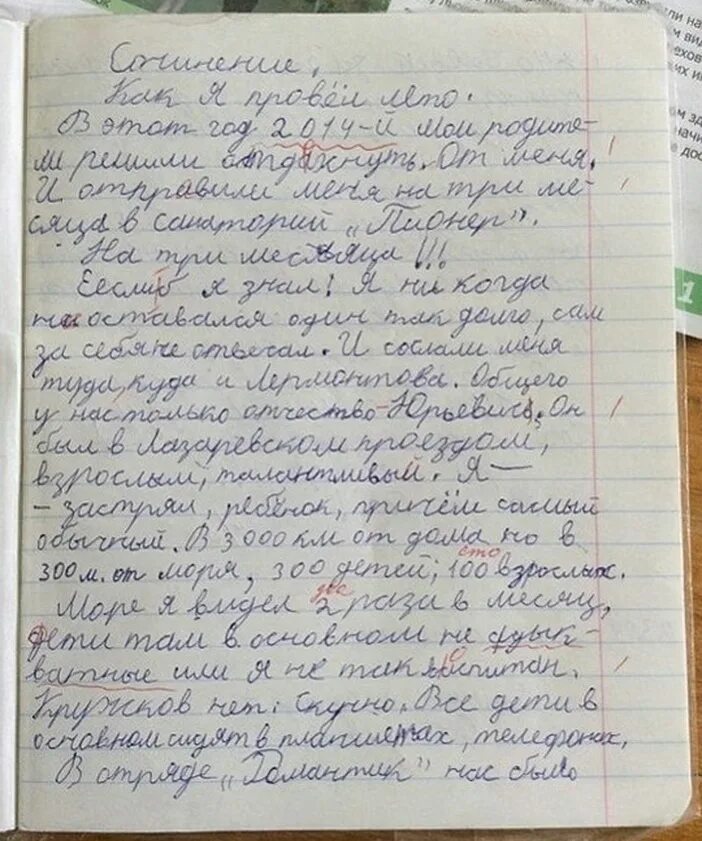 Сочинение.
Как Я провёл лето.
В этот год 2014-й мои родите-
ли решили отдахнуть. От меня.
И отправили меня на три ме-
сяца в санаторий „Пионер".
На три месяца!!!
Еесли б я знал! Я ни когда
не оставался один так долго, сам
за себя не отвечал. И сослали меня
туда, куда и Лермонтова. Общего
у нас только отчество - Юрьевич. Он
был в Лазаревском проездом,
взрослый, талантливый. Я —
- застрял, ребёнок, причём самый
обычный. В 3000 км от дома но в
сто
300 м. от моря, 300 детей, 100 взрослых.
два
Море я видел 2 раза в месяц,
дети там в основном не
ватные или я не так воспитан.
Кружков нет. Скучно. Все дети в
основном сидят в планшетах, телефонах.
В отряде „Романтик" нас было
1